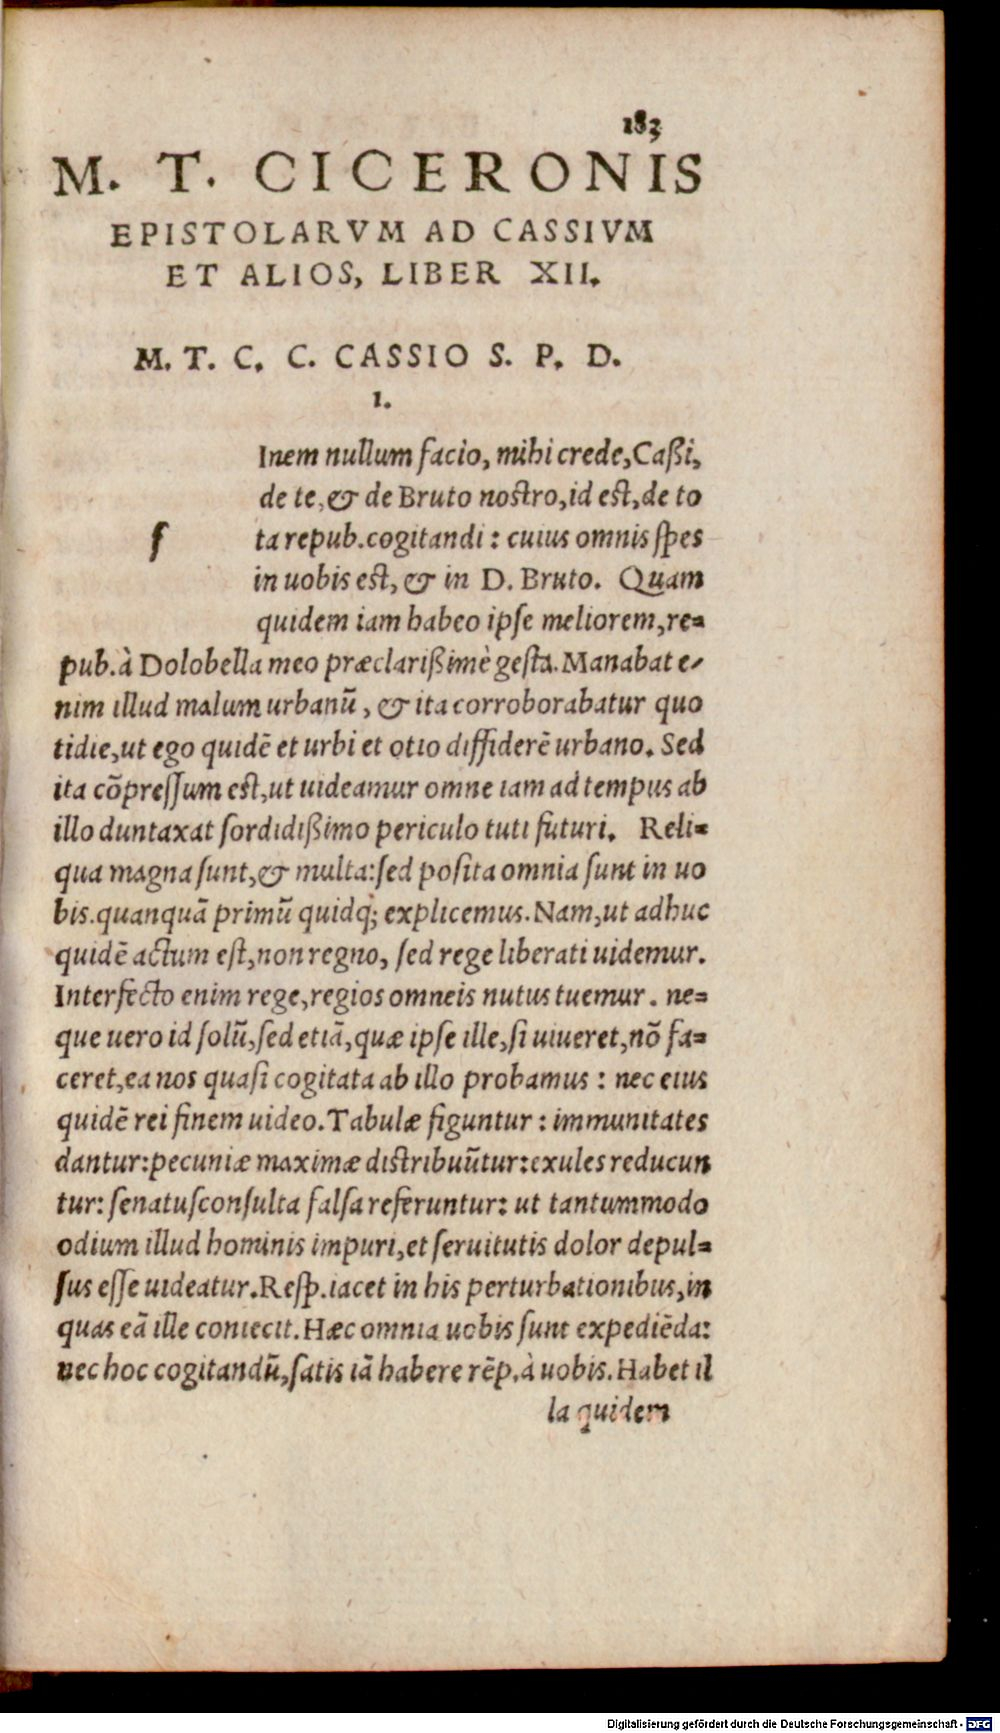 183
M. T. CICERONIS
EPISTOLARVM AD CASSIVM
ET ALIOS, LIBER XII.
M. T. C. C. CASSIO S. P. D.
I.
f Inem nullum facio, mihi crede, Caßi,
de te, & de Bruto nostro, id est, de to
ta repub. cogitandi : cuius omnis spes
in uobis est, & in D. Bruto. Quam
quidem iam habeo ipse meliorem, re=
pub. à Dolobella meo præclarißimè gesta. Manabat e-
nim illud malum urbanū, & ita corroborabatur quo
tidie, ut ego quidē et urbi et otio diffiderē urbano. Sed
ita cōpressum est, ut uideamur omne iam ad tempus ab
illo duntaxat sordidißimo periculo tuti futuri. Reli=
qua magna sunt, & multa: sed posita omnia sunt in uo
bis. quanquā primū quidq; explicemus. Nam, ut adhuc
quidē actum est, non regno, sed rege liberati uidemur.
Interfecto enim rege, regios omneis nutus tuemur. ne=
que uero id solū, sed etiā, quæ ipse ille, si uiueret, nō fa=
ceret, ea nos quasi cogitata ab illo probamus : nec eius
quidē rei finem uideo. Tabulæ figuntur : immunitates
dantur: pecuniæ maximæ distribuūtur: exules reducun
tur: senatusconsulta falsa referuntur: ut tantummodo
odium illud hominis impuri, et seruitutis dolor depul=
sus esse uideatur. Resp. iacet in his perturbationibus, in
quas eā ille coniecit. Hæc omnia uobis sunt expediēda:
nec hoc cogitandū, satis iā habere rēp. à uobis. Habet il
la quidem
Digitalisierung gefördert durch die Deutsche Forschungsgemeinschaft - DFG